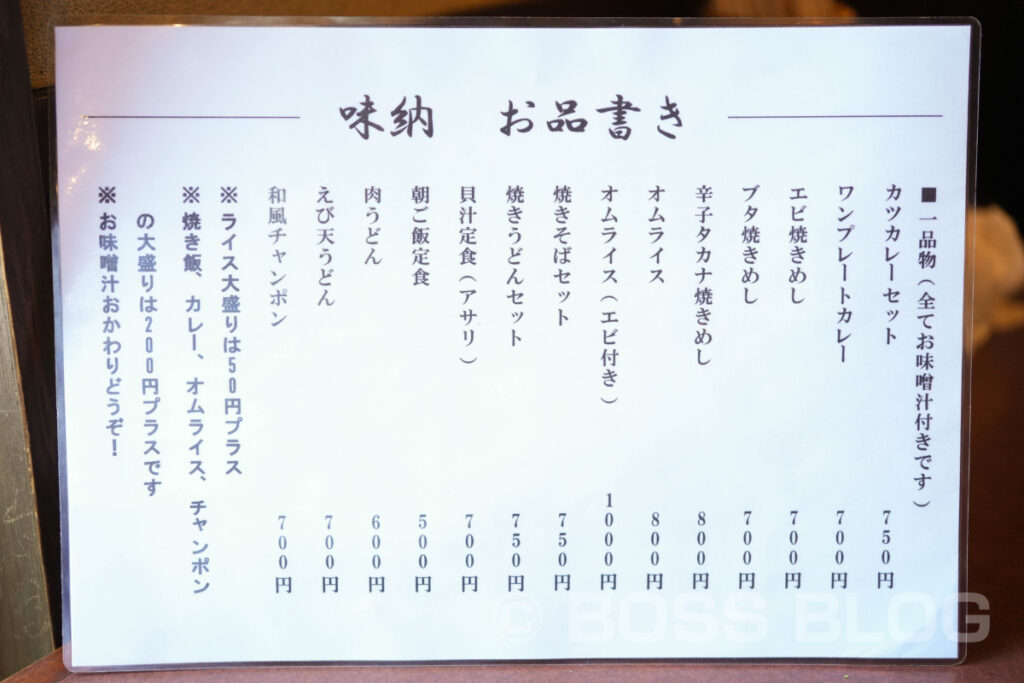 味納　お品書き
■一品物（全てお味噌汁付きです）
カツカレーセット　750円
ワンプレートカレー　700円
エビ焼きめし　700円
ブタ焼きめし　700円
辛子タカナ焼きめし　800円
オムライス　800円
オムライス（エビ付き）　1000円
焼きそばセット　750円
焼きうどんセット　750円
貝汁定食（アサリ）　700円
朝ご飯定食　500円
肉うどん　600円
えび天うどん　700円
和風チャンポン　700円
※ライス大盛りは50円プラス
※焼き飯、カレー、オムライス、チャンポン
の大盛りは200円プラスです
※お味噌汁おかわりどうぞ！
© BOSS BLOG